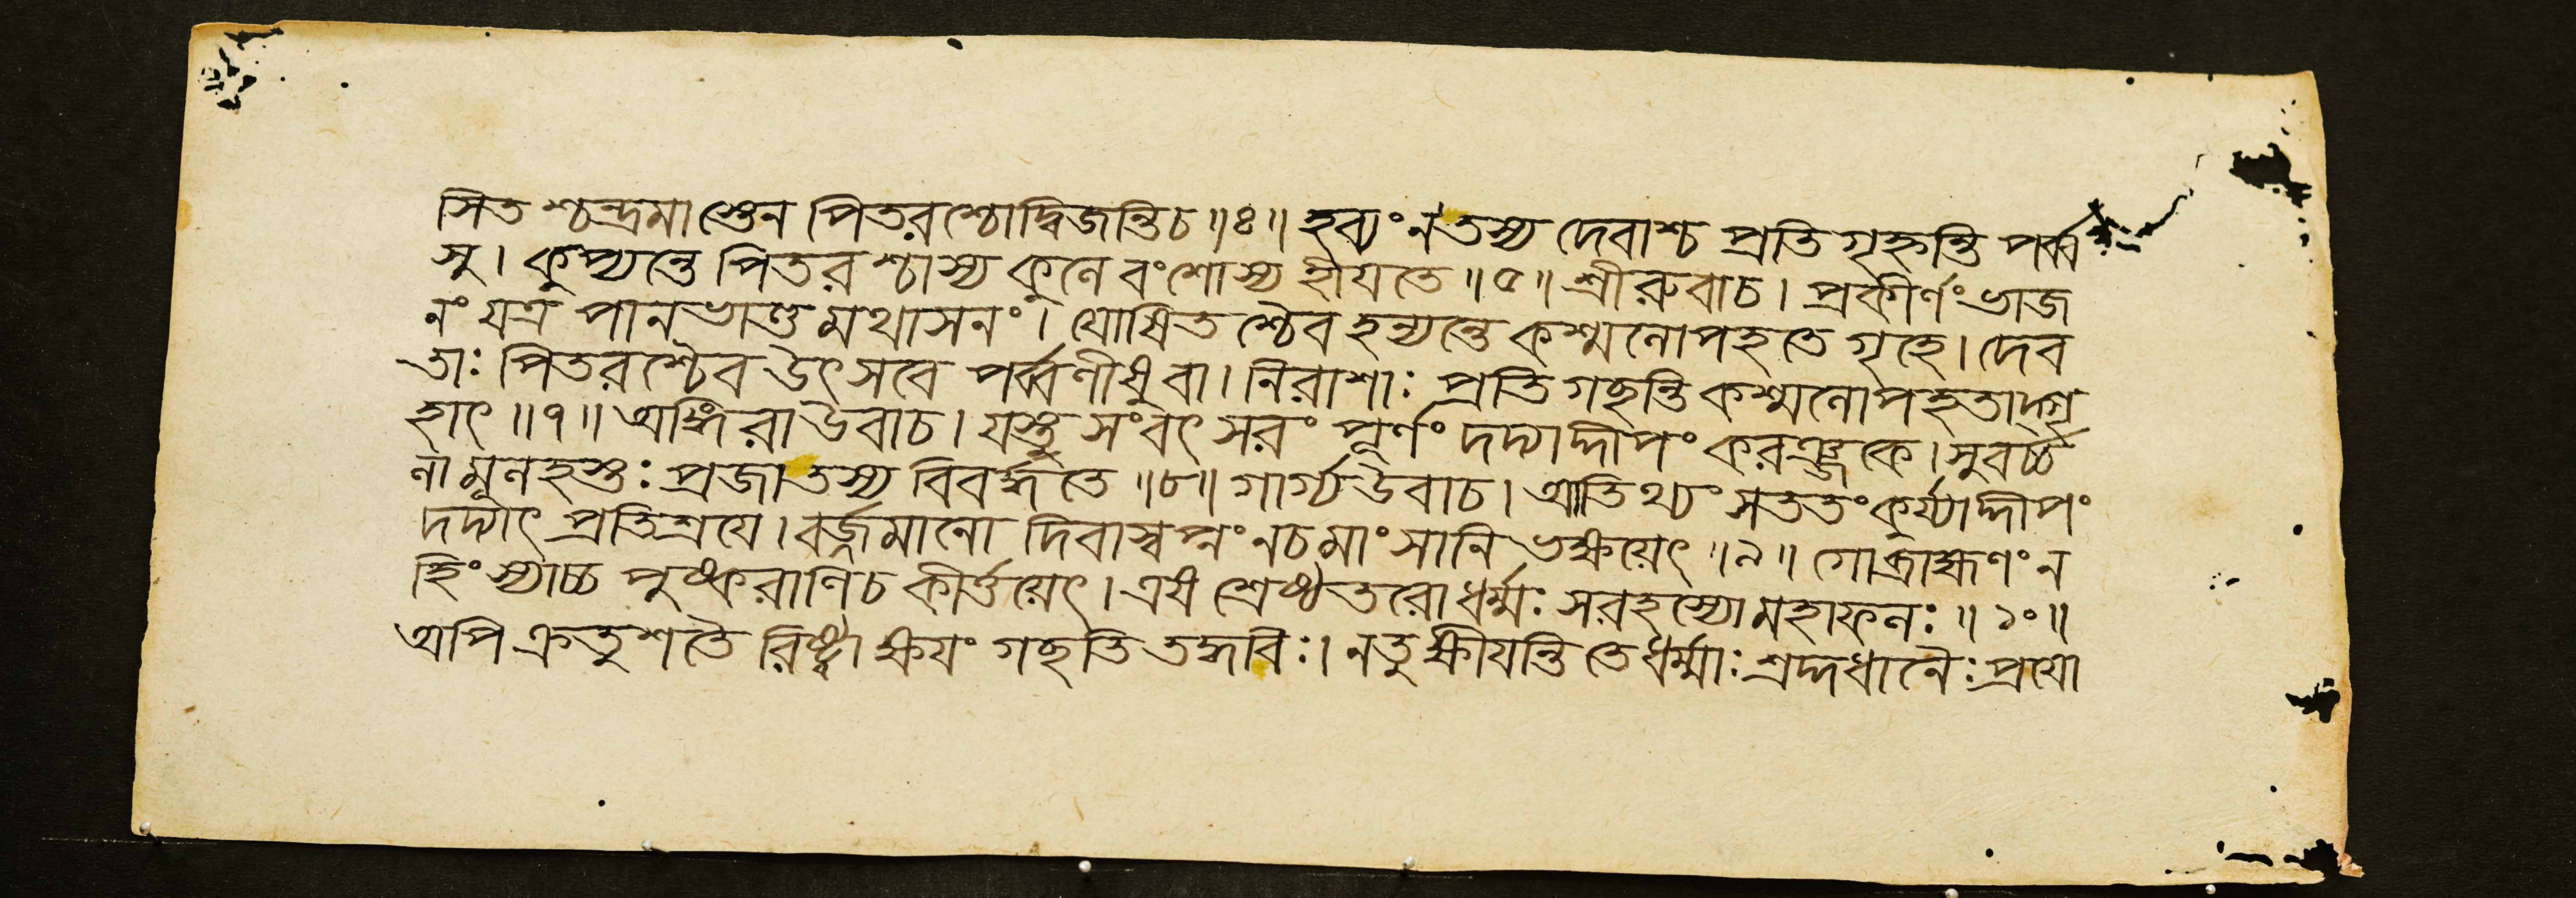 সিত শ্চন্দ্রমাস্তেন পিতরশ্চোদ্বিজন্তিচ॥৪॥ হব্যং নতস্য দেবাশ্চ প্রতি গৃহ্নন্তি পর্ব্ব
সু। কুপ্যন্তে পিতর শ্চাস্য কুলে বংশোস্য হীয়তে॥৫॥ শ্রীরুবাচ। প্রকীর্ণং ভাজ
নং যত্র পানভাণ্ড মথাসনং। যোষিত শ্চৈব হন্যন্তে কশ্মলোপহতে গৃহে। দেব
তাঃ পিতরশ্চৈব উৎসবে পর্ব্বণীষু বা। নিরাশাঃ প্রতি গছন্তি কশ্মলোপহতাদ্গৃ
হাৎ॥৭॥ অঙ্গিরা উবাচ। যস্তু সংবৎ সরং পূর্ণং দদ্যাদ্দীপং করঞ্জকে। সুবর্চ্চ
লা মূলহস্তঃ প্রজা তস্য বিবর্দ্ধতে॥৮॥ গার্গ্য উবাচ। আতিথ্যং সততং কুর্য্যাদ্দীপং
দদ্যাৎ প্রতিশ্রয়ে। বর্জ্জমানো দিবাস্বপ্নং নচমাংসানি ভক্ষয়েৎ॥৯॥ গোব্রাহ্মণং ন
হিংস্যাচ্চ পুষ্করাণিচ কীর্ত্তয়েৎ। এষ শ্রেষ্ঠতরো ধর্ম্মঃ সরহস্যো মহাফলঃ॥১০॥
অপি ক্রতুশতৈ রিষ্ট্বা ক্ষয়ং গছতি তদ্ধবিঃ। নতু ক্ষীয়ন্তি তে ধর্ম্মাঃ শ্রদ্দধানৈঃ প্রযো